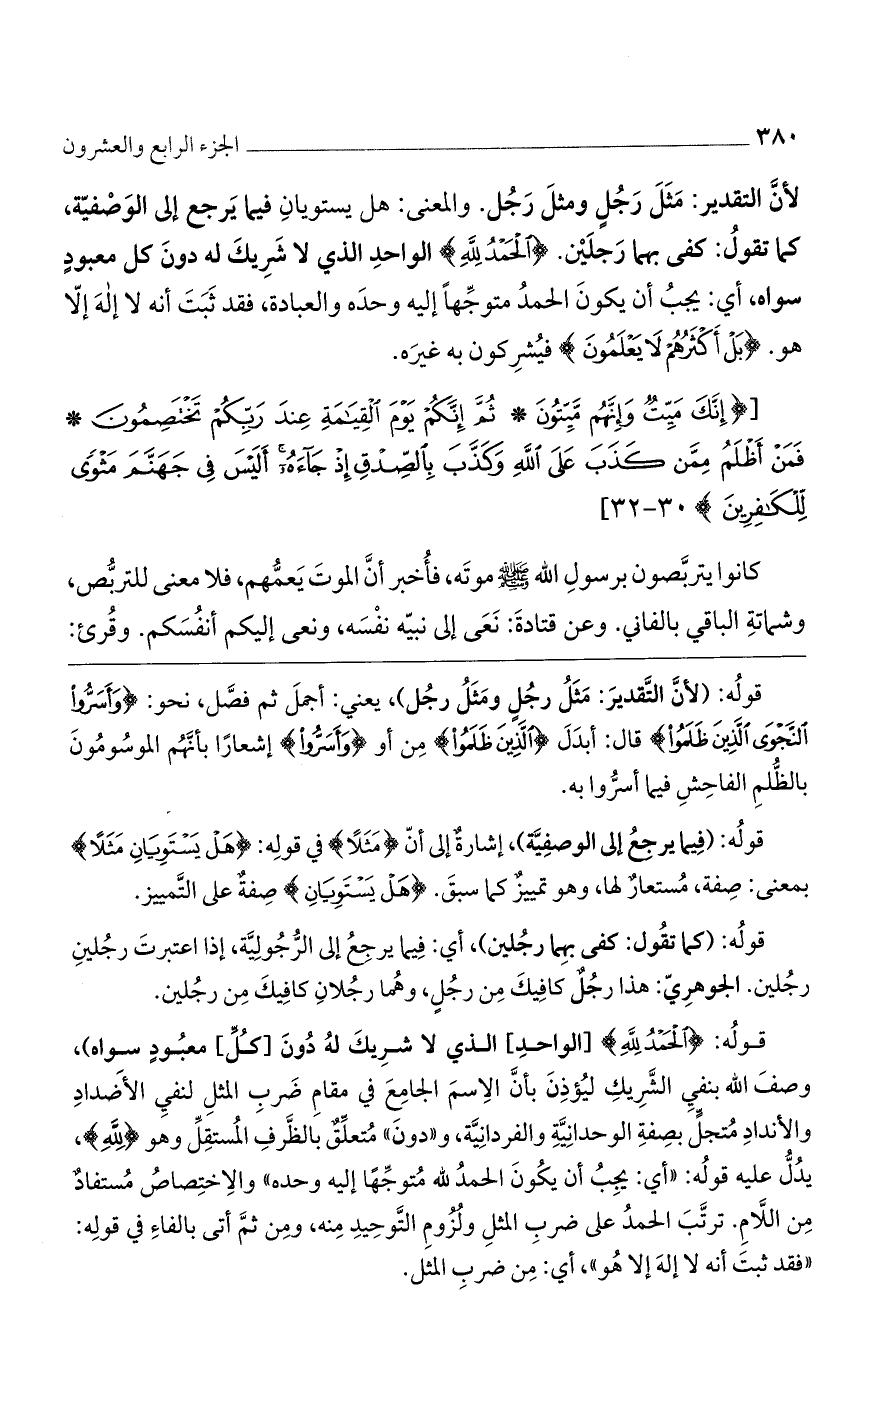 ٣٨٠ ــــــــــ الجزء الرابع والعشرون
لأنَّ التقدير: مَثَلَ رَجُلٍ ومثلَ رَجُل. والمعنى: هل يستويانِ فيما يَرجع إلى الوَصْفيّة،
كما تقولُ: كفى بهما رَجلَيْن. ﴿ٱلْحَمْدُ لِلَّهِ﴾ الواحدِ الذي لا شَرِيكَ له دونَ كل معبودٍ
سواه، أي: يجبُ أن يكونَ الحمدُ متوجِّهاً إليه وحدَه والعبادة، فقد ثَبَتَ أنه لا إلٰهَ إلّا
هو. ﴿بَلْ أَكْثَرُهُمْ لَا يَعْلَمُونَ﴾ فيُشرِكون به غيرَه.
[﴿إِنَّكَ مَيِّتٌ وَإِنَّهُم مَّيِّتُونَ * ثُمَّ إِنَّكُمْ يَوْمَ ٱلْقِيَٰمَةِ عِندَ رَبِّكُمْ تَخْتَصِمُونَ *
فَمَنْ أَظْلَمُ مِمَّن كَذَبَ عَلَى ٱللَّهِ وَكَذَّبَ بِٱلصِّدْقِ إِذْ جَآءَهُۥٓ ۚ أَلَيْسَ فِى جَهَنَّمَ مَثْوًى
لِّلْكَٰفِرِينَ﴾ ٣٠-٣٢]
كانوا يتربَّصون برسولِ الله ﷺ موتَه، فأُخبر أنَّ الموتَ يَعمُّهم، فلا معنى للتربُّص،
وشماتةِ الباقي بالفاني. وعن قتادةَ: نَعَى إلى نبيّه نفْسَه، ونعى إليكم أنفُسَكم. وقُرئ:
قولُه: (لأنَّ التَّقديرَ: مَثَلُ رجُلٍ ومَثَلُ رجُل)، يعني: أجملَ ثم فصَّل، نحو: ﴿وَأَسَرُّوا۟
ٱلنَّجْوَى ٱلَّذِينَ ظَلَمُوا۟﴾ قال: أبدَلَ ﴿ٱلَّذِينَ ظَلَمُوا۟﴾ مِن أو ﴿وَأَسَرُّوا۟﴾ إشعارًا بأنَّهُم الموسُومُونَ
بالظُّلمِ الفاحِشِ فيما أسرُّوا به.
قولُه: (فِيما يرجعُ إلى الوصفِيَّة)، إشارةٌ إلى أنّ ﴿مَثَلًا﴾ في قولِه: ﴿هَلْ يَسْتَوِيَانِ مَثَلًا﴾
بمعنى: صِفة، مُستعارٌ لها، وهو تمييزٌ كما سبقَ. ﴿هَلْ يَسْتَوِيَانِ﴾ صِفةٌ على التَّمييز.
قولُه: (كما تقُول: كفى بِهما رجُلين)، أي: فِيما يرجعُ إلى الرُّجُوليَّة، إذا اعتبرتَ رجُلينِ
رجُلين. الجوهرِيّ: هذا رجُلٌ كافيكَ مِن رجُلٍ، وهُما رجُلانِ كافيكَ مِن رجُلين.
قولُه: ﴿ٱلْحَمْدُ لِلَّهِ﴾ [الواحدِ] الذي لا شرِيكَ لهُ دُونَ [كُلِّ] معبُودٍ سواه)،
وصفَ الله بنفيِ الشَّريكِ ليُؤذِنَ بأنَّ الاِسمَ الجامعَ في مقامِ ضَربِ المثلِ لنفيِ الأضدادِ
والأندادِ مُتجلٍّ بصِفةِ الوحدانِيَّةِ والفردانِيَّة، و«دونَ» مُتعلِّقٌ بالظَّرفِ المُستقِلِّ وهو ﴿لِلَّهِ﴾،
يدُلُّ عليه قولُه: «أي: يجِبُ أن يكُونَ الحمدُ لله مُتوجِّهًا إليه وحده» والاِختِصاصُ مُستفادٌ
مِن اللَّامِ. ترتَّبَ الحمدُ على ضربِ المثلِ ولُزُومِ التَّوحِيدِ مِنه، ومِن ثمَّ أتى بالفاءِ في قولِه:
«فقد ثبتَ أنه لا إلهَ إلا هُو»، أي: مِن ضربِ المثل.